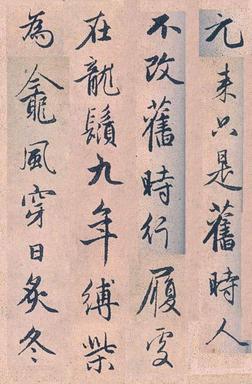 元来只是舊時人
不改舊時行履處
在龍鬚九年縛柴
為龕風穿日炙冬